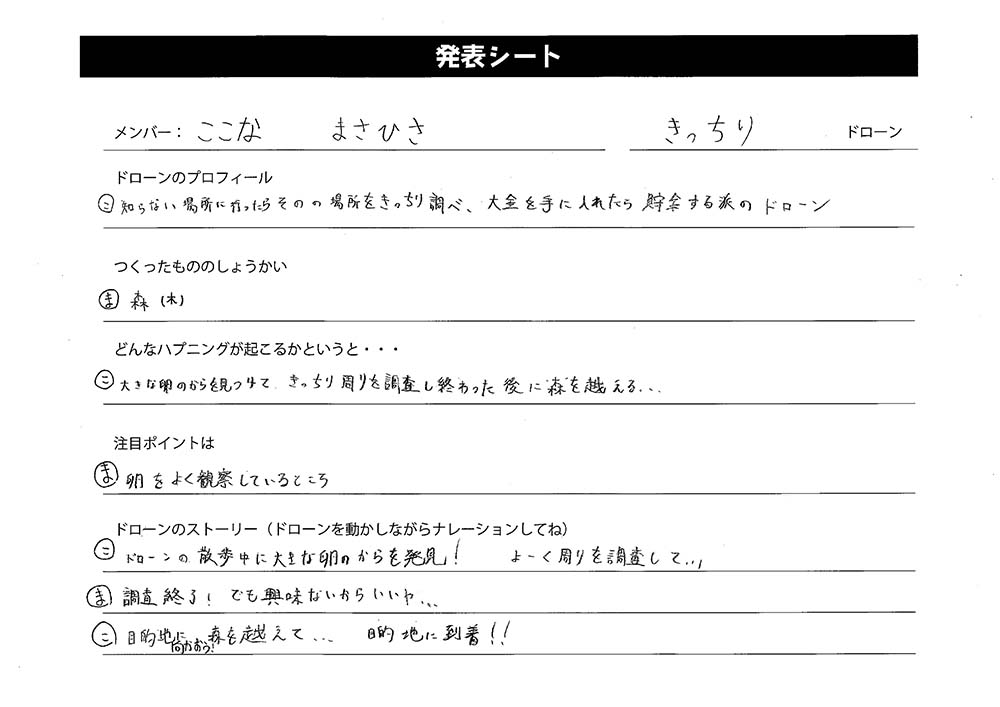 発表シート
メンバー： ここな　まさひさ　きっちり ドローン
ドローンのプロフィール
㋙ 知らない場所に行ったらそのの場所をきっちり調べ、大金を手に入れたら貯金する派のドローン
つくったもののしょうかい
ま 森(木)
どんなハプニングが起こるかというと・・・
㋙ 大きな卵のからを見つけて、きっちり周りを調査し終わった後に森を越える...
注目ポイントは
ま 卵をよく観察しているところ
ドローンのストーリー（ドローンを動かしながらナレーションしてね）
㋙ ドローンの散歩中に大きな卵のからを発見！　よーく周りを調査して...
ま 調査終了！でも興味ないからいいや...
㋙ 目的地に向かおう！森を越えて...　目的地に到着！！